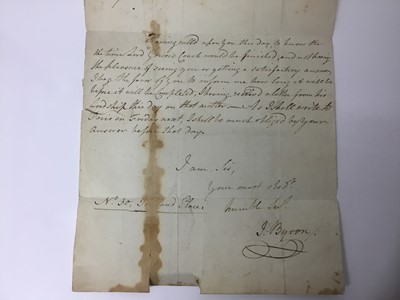 Having call'd upon you this day, to know the
the time Lord Coach would be finished, and not having
the pleasure of seeing you or getting a satisfactory answer,
I beg the favor of you to inform me how long it will be
before it will be compleated, I having rec'd a letter from his
Lordship this day on that matter — As I shall write to
on next, I shall be much obliged by your
answer before that day.
I am Sir,
Your most Obed.t
No. 30, Place,
humble Ser.t
J. Byron.